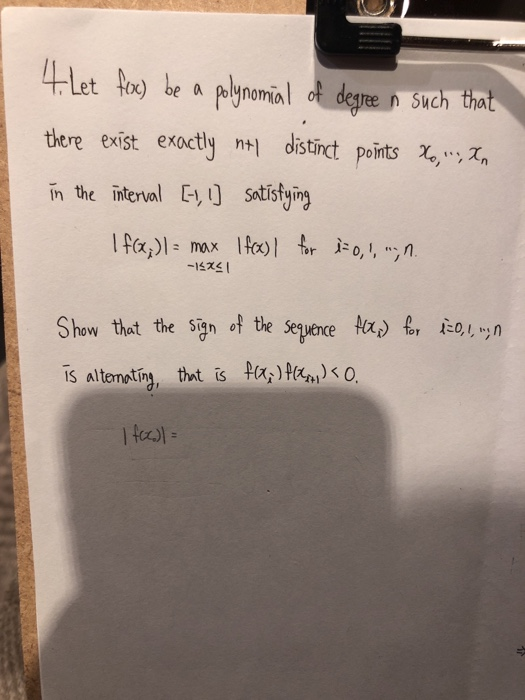 4. Let f(x) be a polynomial of degree n such that
there exist exactly n+1 distinct points x₀, ⋯, xₙ
in the interval [-1, 1] satisfying
|f(xᵢ)| = max |f(x)| for i=0, 1, ⋯, n.
-1≤x≤1
Show that the sign of the sequence f(xᵢ) for i=0, 1, ⋯, n
is alternating, that is f(xᵢ) f(xᵢ₊₁) < 0.
|f(x₀)| =